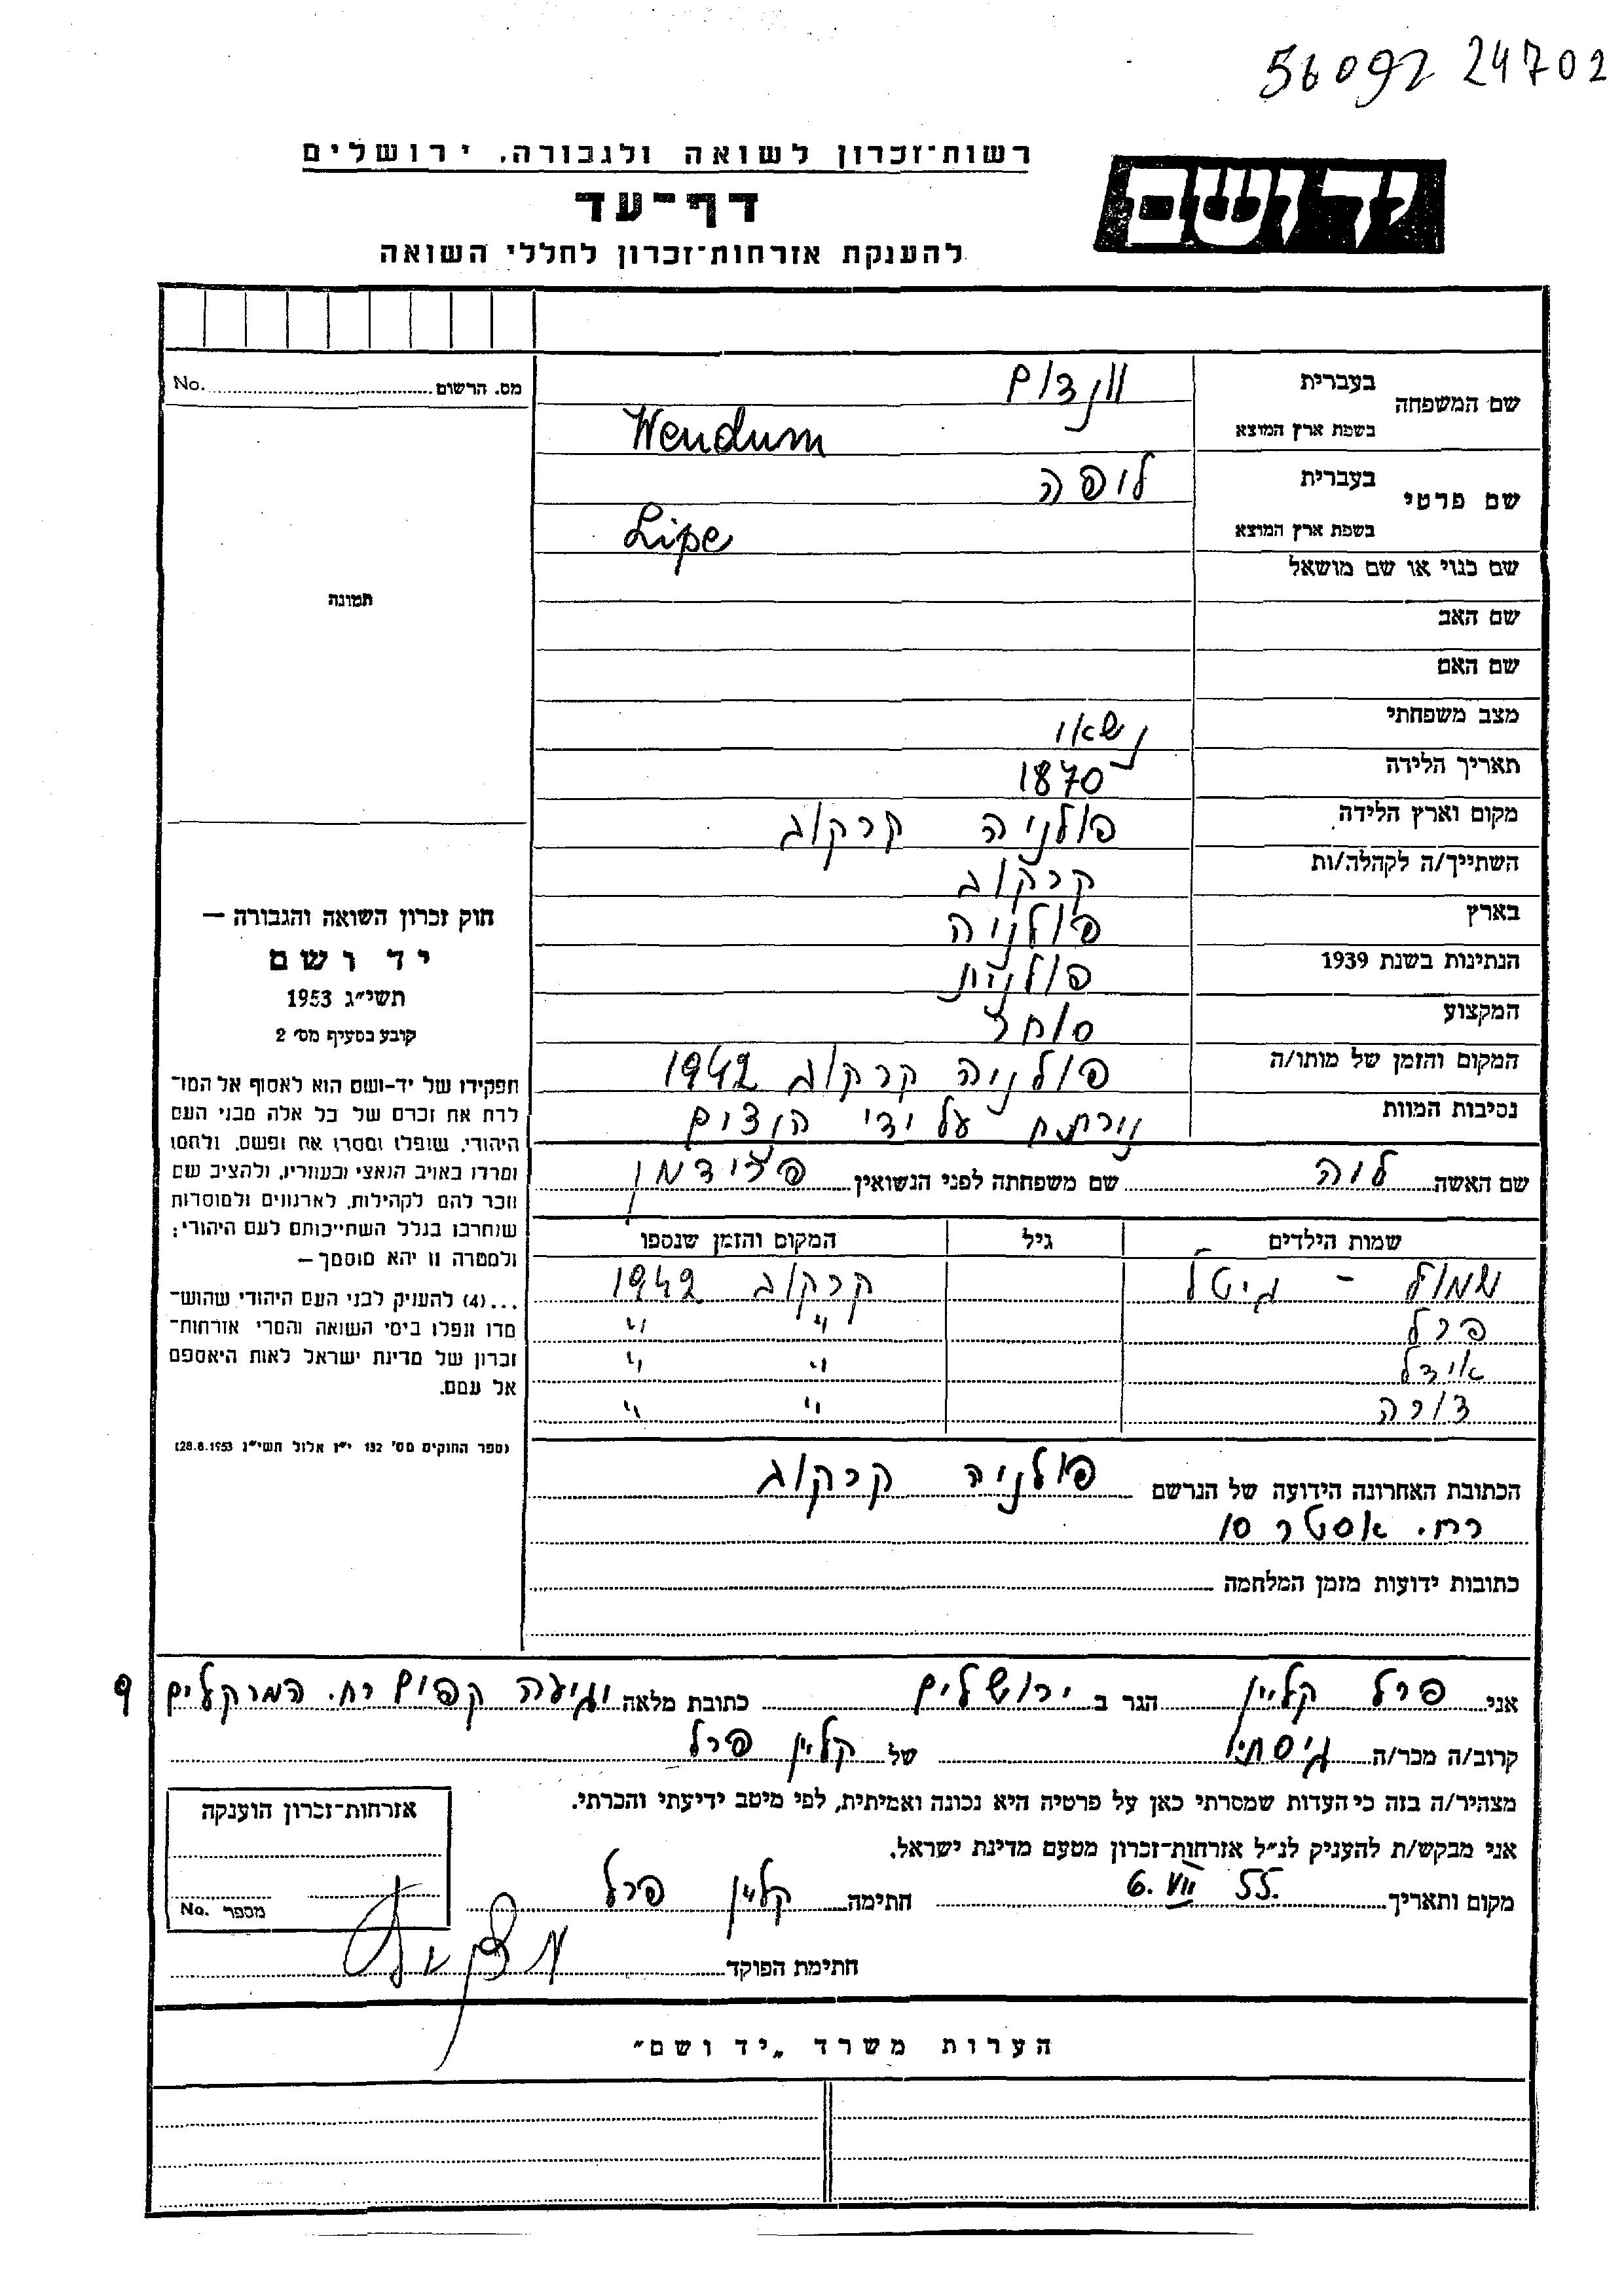 56092 24702
רשות־זכרון לשואה ולגבורה, ירושלים
יד ושם
דף־עד
להענקת אזרחות־זכרון לחללי השואה
מס. הרשום No.
שם המשפחה בעברית ונדום
בשפת ארץ המוצא Wendum
שם פרטי בעברית ליפה
בשפת ארץ המוצא Lipe
שם כנוי או שם מושאל
תמונה
שם האב
שם האם
מצב משפחתי נשאוי
תאריך הלידה 1870
מקום וארץ הלידה פולניה קרקוב
השתייך/ה לקהלה/ות קרקוב
בארץ פולניה
הנתינות בשנת 1939 פולנית
המקצוע סוחר
המקום והזמן של מותו/ה פולניה קרקוב 1942
נסיבות המוות על ידי
חוק זכרון השואה והגבורה —
יד ושם
תשי״ג 1953
קובע בסעיף מס׳ 2
תפקידו של יד-ושם הוא לאסוף אל המו־
לדת את זכרם של כל אלה מבני העם
היהודי, שנפלו ומסרו את נפשם, נלחמו
ומרדו באויב הנאצי ובעוזריו, ולהציב שם
וזכר להם לקהילות, לארגונים ולמוסדות
שנחרבו בגלל השתייכותם לעם היהודי;
ולמטרה זו יהא מוסמך —
...(4) להעניק לבני העם היהודי שהוש־
מדו ונפלו בימי השואה והמרי אזרחות־
זכרון של מדינת ישראל לאות היאספם
אל עמם.
(ספר החוקים מס׳ 132 י״ז אלול תשי״ג 28.8.1953)
שם האשה לוה שם משפחתה לפני הנשואין פרידמן
שמות הילדים גיל המקום והזמן שנספו
שמול - גיטל קרקוב 1942
פרל " "
אידל " "
דורה " "
הכתובת האחרונה הידועה של הנרשם פולניה קרקוב
רח. אסטר 10
כתובות ידועות מזמן המלחמה
אני פרל קליין הגר ב ירושלים כתובת מלאה רח. 9
קרוב/ה מכר/ה גיסתו של קליין פרל
מצהיר/ה בזה כי העדות שמסרתי כאן על פרטיה היא נכונה ואמיתית, לפי מיטב ידיעתי והכרתי.
אני מבקש/ת להעניק לנ״ל אזרחות־זכרון מטעם מדינת ישראל.
מקום ותאריך 6. VII 55. חתימה קליין פרל
חתימת הפוקד
אזרחות־זכרון הוענקה
מספר No.
הערות משרד „יד ושם״